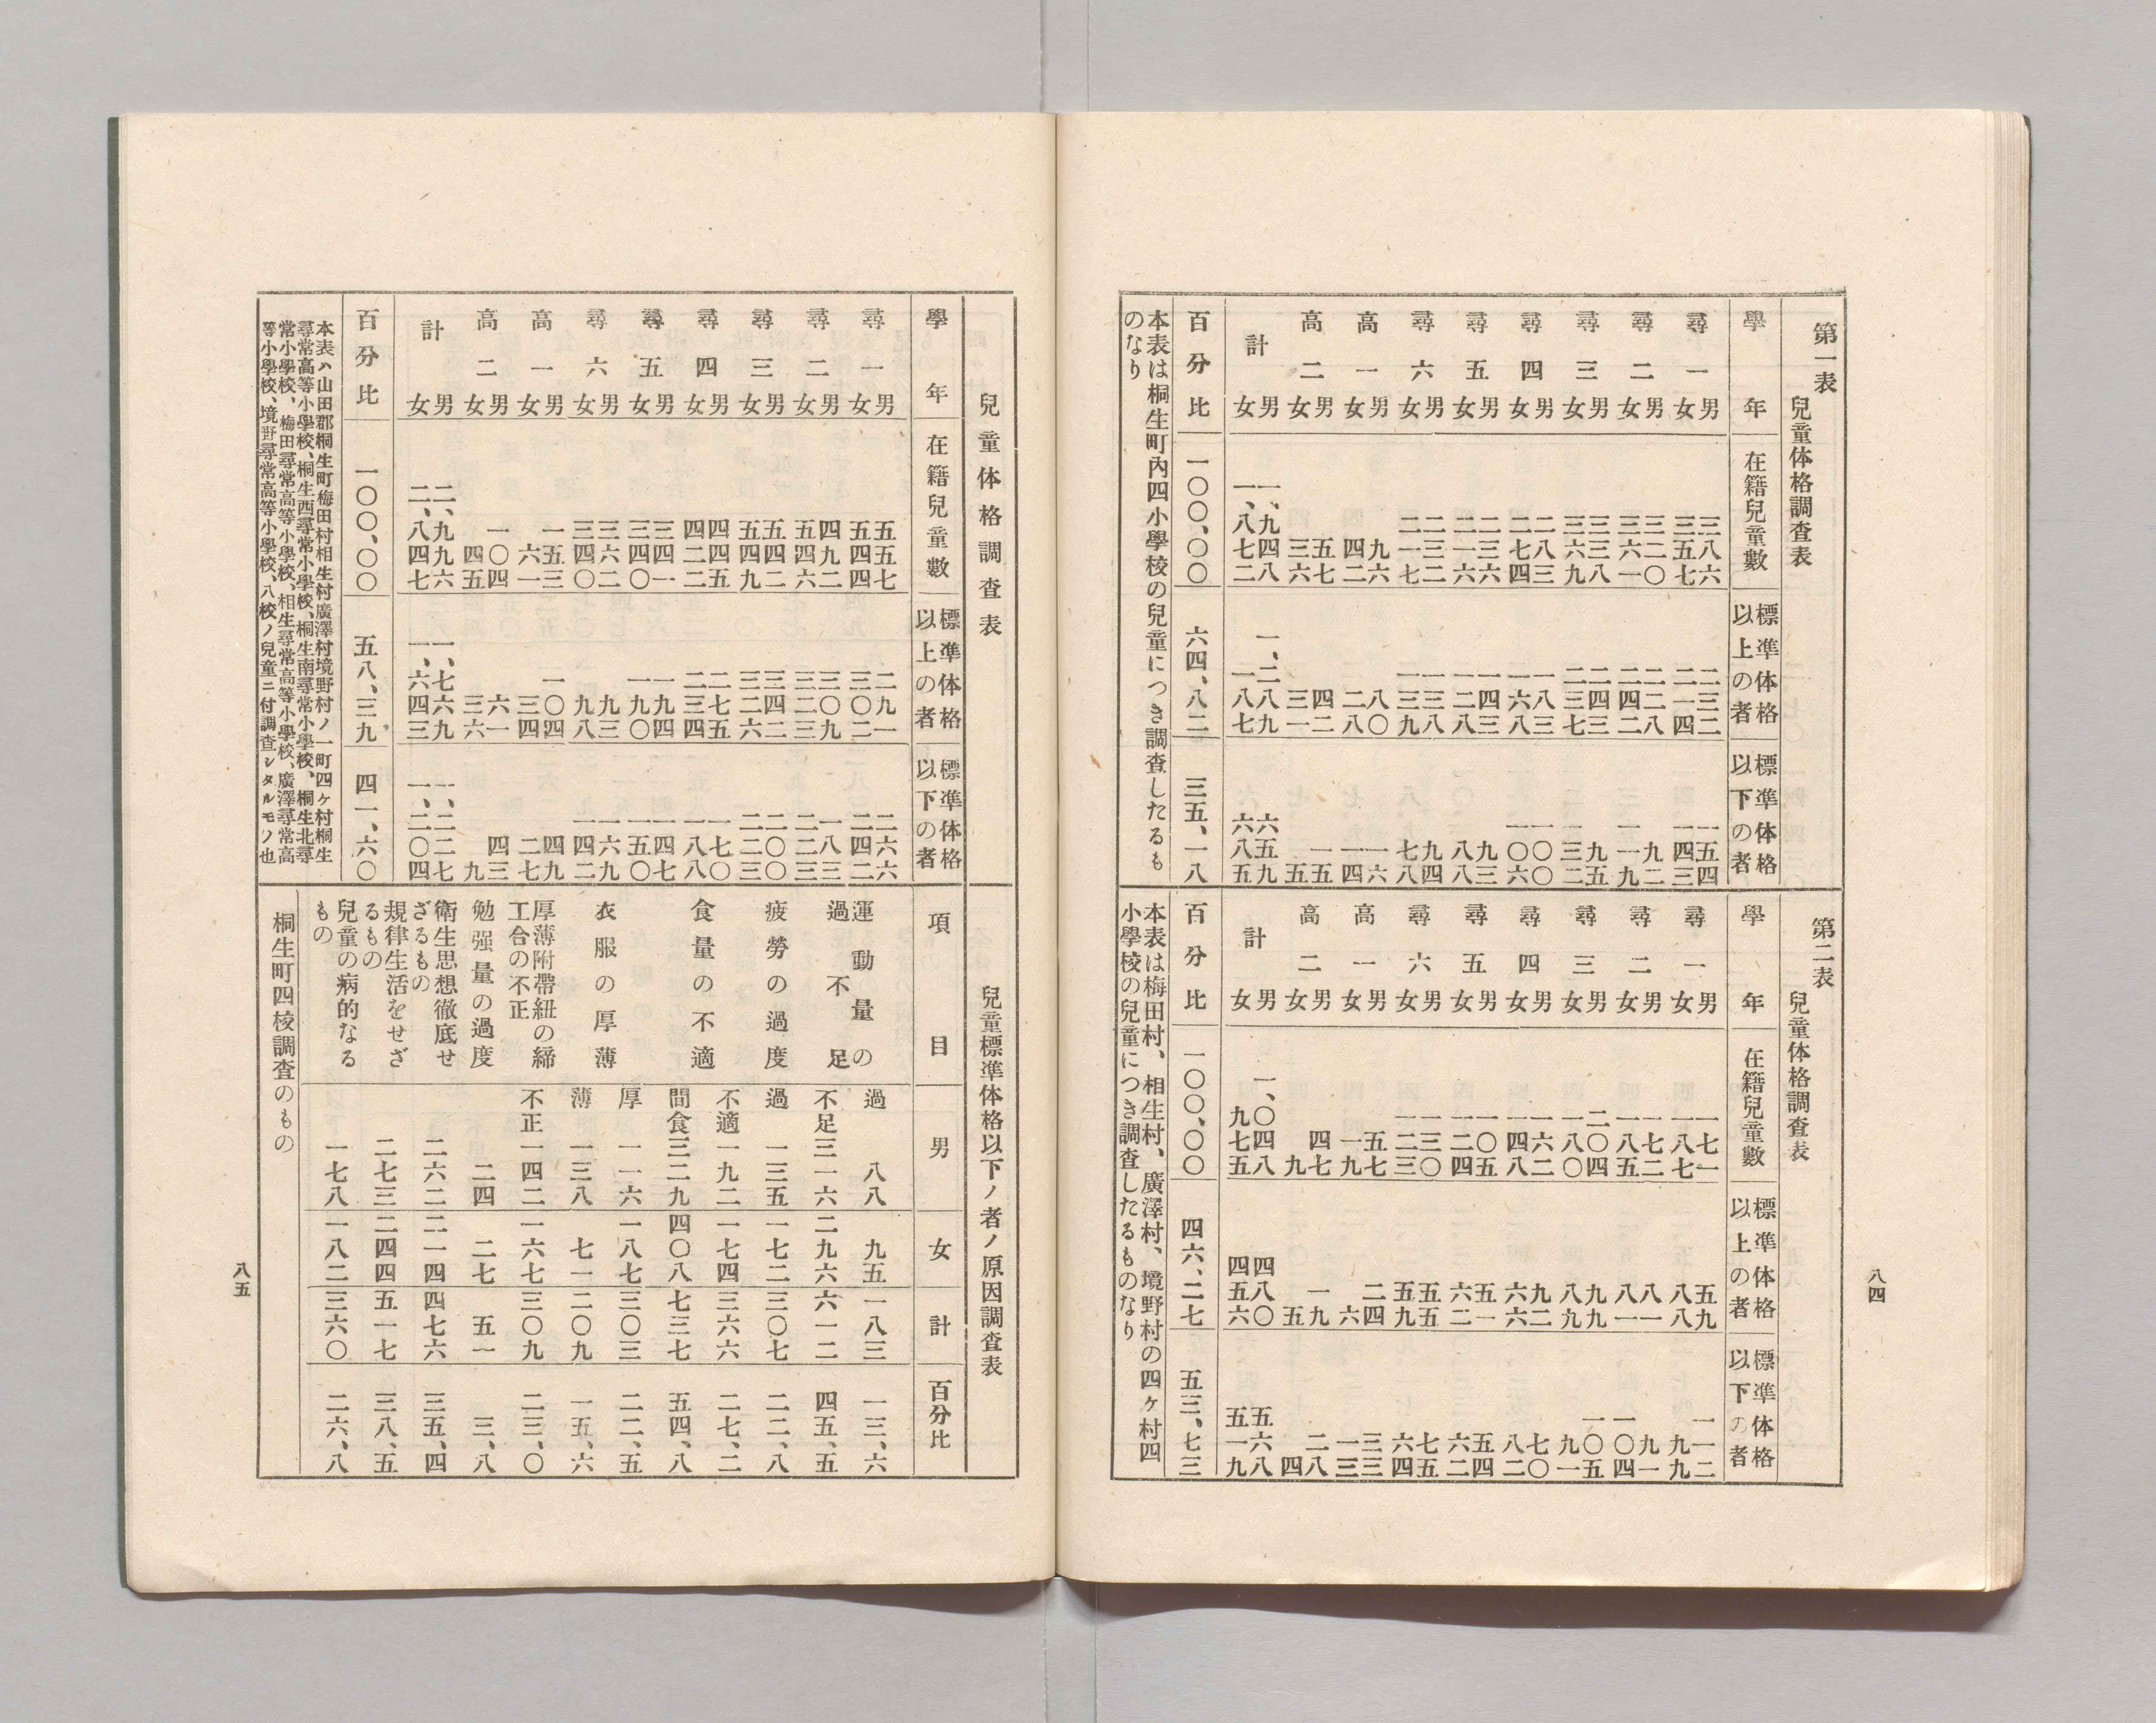 第一表 兒童体格調査表
學年 在籍兒童數 標準体格以上の者 標準体格以下の者
尋一 男 三八六 二三二 一五四
女 三五七 二一四 一四三
尋二 男 三二〇 二二八 九二
女 三六一 二四二 一一九
尋三 男 三三八 二四三 九五
女 三六九 二三七 一三二
尋四 男 二八三 一八三 一〇〇
女 二七四 一六八 一〇六
尋五 男 二三六 一四三 九三
女 二一六 一二八 八八
尋六 男 二三二 一三八 九四
女 二一七 一三九 七八
高一 男 九六 八〇 一六
女 四二 二八 一四
高二 男 五七 四二 一五
女 三六 三一 五
計 男 一、九四八 一、二八九 六五九
女 一、八七二 一、一八七 六八五
百分比 一〇〇、〇〇 六四、八二 三五、一八
本表は桐生町內四小學校の兒童につき調査したるも
のなり
第二表 兒童体格調査表
學年 在籍兒童數 標準体格以上の者 標準体格以下の者
尋一 男 一七一 五九 一一二
女 一八七 八八 九九
尋二 男 一七二 八一 九一
女 一八五 八一 一〇四
尋三 男 二〇四 九九 一〇五
女 一八〇 八九 九一
尋四 男 一六二 九二 七〇
女 一四八 六六 八二
尋五 男 一〇五 五一 五四
女 一二四 六二 六二
尋六 男 一三〇 五五 七五
女 一二三 五九 六四
高一 男 五七 二四 三三
女 一九 六 一三
高二 男 四七 一九 二八
女 九 五 四
計 男 一、〇四八 四八〇 五六八
女 九七五 四五六 五一九
百分比 一〇〇、〇〇 四六、二七 五三、七三
本表は梅田村、相生村、廣澤村、境野村の四ヶ村四
小學校の兒童につき調査したるものなり
八四
兒童体格調査表
學年 在籍兒童數 標準体格以上の者 標準体格以下の者
尋一 男 五五七 二九一 二六六
女 五四四 三〇二 二四二
尋二 男 四九二 三〇九 一八三
女 五四六 三二三 二二三
尋三 男 五四二 三四二 二〇〇
女 五四九 三二六 二二三
尋四 男 四四五 二七五 一七〇
女 四二二 二三四 一八八
尋五 男 三四一 一九四 一四七
女 三四〇 一九〇 一五〇
尋六 男 三六二 一九三 一六九
女 三四〇 一九八 一四二
高一 男 一五三 一〇四 四九
女 六一 三四 二七
高二 男 一〇四 六一 四三
女 四五 三六 九
計 男 二、九九六 一、七六九 一、二二七
女 二、八四七 一、六四三 一、二〇四
百分比 一〇〇、〇〇 五八、三九 四一、六〇
本表ハ山田郡桐生町梅田村相生村廣澤村境野村ノ一町四ヶ村桐生
尋常高等小學校、桐生西尋常小學校、桐生南尋常小學校、桐生北尋
常小學校、梅田尋常高等小學校、相生尋常高等小學校、廣澤尋常高
等小學校、境野尋常高等小學校、八校ノ兒童ニ付調査シタルモノ也
兒童標準体格以下ノ者ノ原因調査表
項目 男 女 計 百分比
運動量の
過不足
過 八八 九五 一八三 一三、六
不足 三一六 二九六 六一二 四五、五
疲勞の過度 過 一三五 一七二 三〇七 二二、八
食量の不適 不適 一九二 一七四 三六六 二七、二
間食 三二九 四〇八 七三七 五四、八
衣服の厚薄 厚 一一六 一八七 三〇三 二二、五
薄 一三八 七一 二〇九 一五、六
厚薄附帶紐の締
工合の不正
不正 一四二 一六七 三〇九 二三、〇
勉强量の過度 二四 二七 五一 三、八
衛生思想徹底せ
ざるもの
二六二 二一四 四七六 三五、四
規律生活をせざ
るもの
二七三 二四四 五一七 三八、五
兒童の病的なる
もの
一七八 一八二 三六〇 二六、八
桐生町四校調査のもの
八五